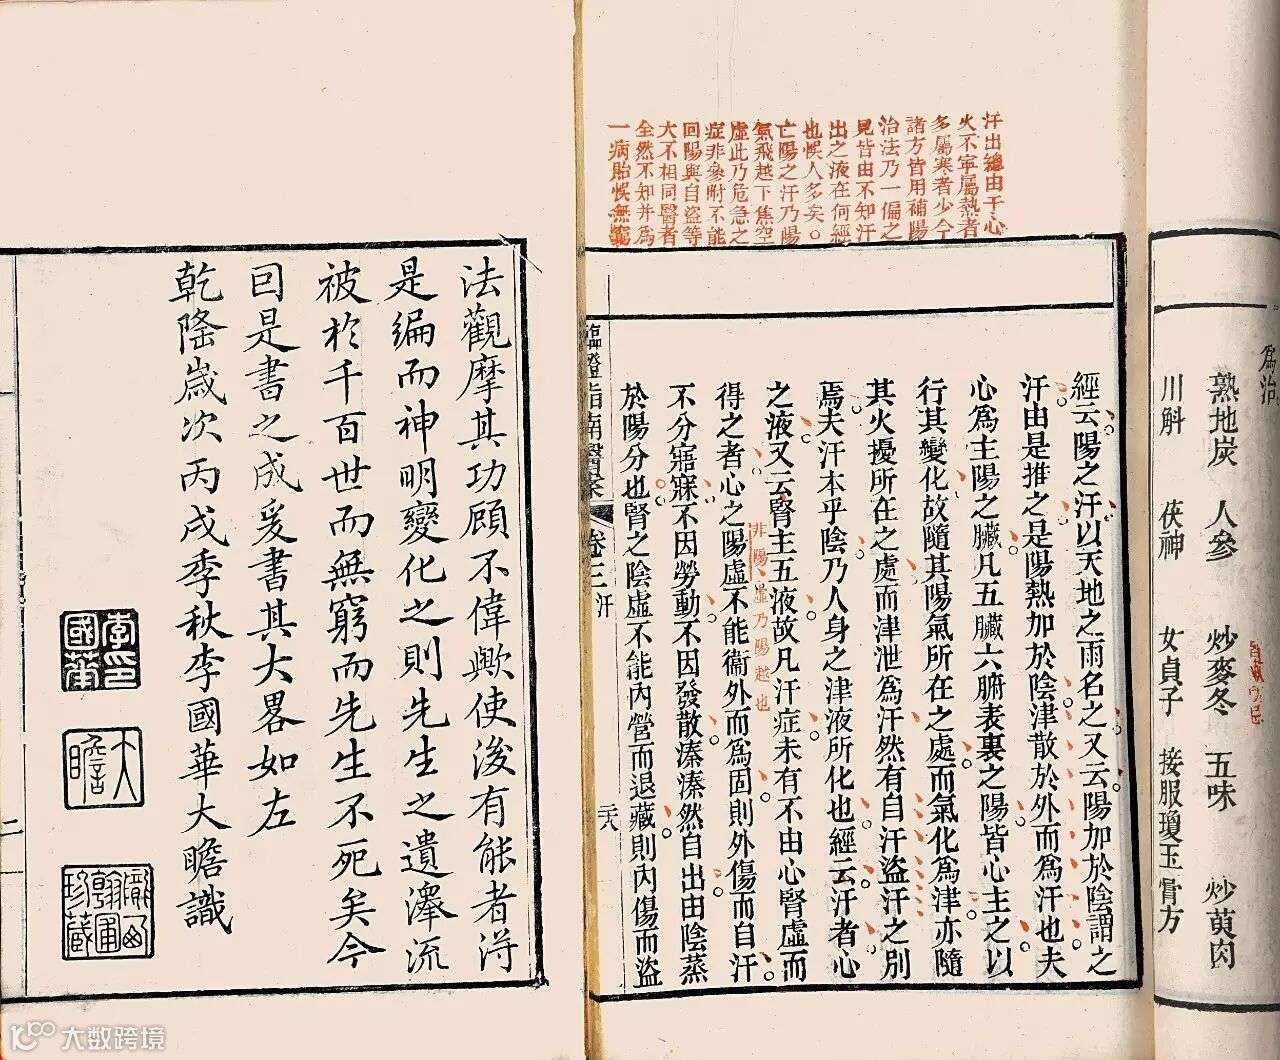 為治
熟地炭 人參 炒麥冬 五味 炒萸肉
川斛 茯神 女貞子 接服瓊玉膏方
汗出總由于心
火不寧屬熱者
多屬寒者少今
諸方皆用補陽
治法乃一偏之
見皆由不知汗
出之液在何經
也悞人多矣。
亡陽之汗乃陽
氣飛越下焦空
虛此乃危急之
症非參附不能
回陽與自盜等
大不相同醫者
全然不知并為
一病胎悞無窮
經云陽之汗以天地之雨名之又云陽加於陰謂之
汗由是推之是陽熱加於陰津散於外而為汗也夫
心為主陽之臟凡五臟六腑表裏之陽皆心主之以
行其變化故隨其陽氣所在之處而氣化為津亦隨
其火擾所在之處而津泄為汗然有自汗盜汗之別
焉夫汗本乎陰乃人身之津液所化也經云汗者心
之液又云腎主五液故凡汗症未有不由心腎虛而
得之者心之陽虛不能衞外而為固則外傷而自汗
非陽虛乃陽越也
不分寤寐不因勞動不因發散溱溱然自出由陰蒸
於陽分也腎之陰虛不能內營而退藏則內傷而盜
臨證指南醫案 卷三 汗 二八
法觀摩其功顧不偉歟使後有能者得
是編而神明變化之則先生之遺澤流
被於千百世而無窮而先生不死矣今
因是書之成爰書其大畧如左
乾隆歲次丙戌季秋李國華大瞻識
李印國華
大瞻
隴西翰圃珍藏
二
大数跨境